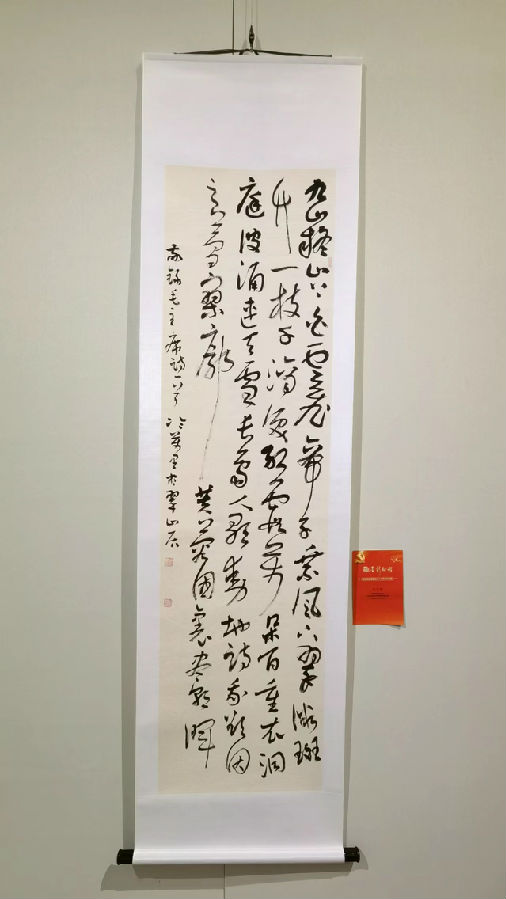 九嶷山上白雲飛帝子乘風下翠微斑
竹一枝千滴淚紅霞萬朵百重衣洞
庭波涌連天雪長島人歌動地詩我欲因
之夢寥廓芙蓉國裏盡朝暉
敬錄毛主席詩一首